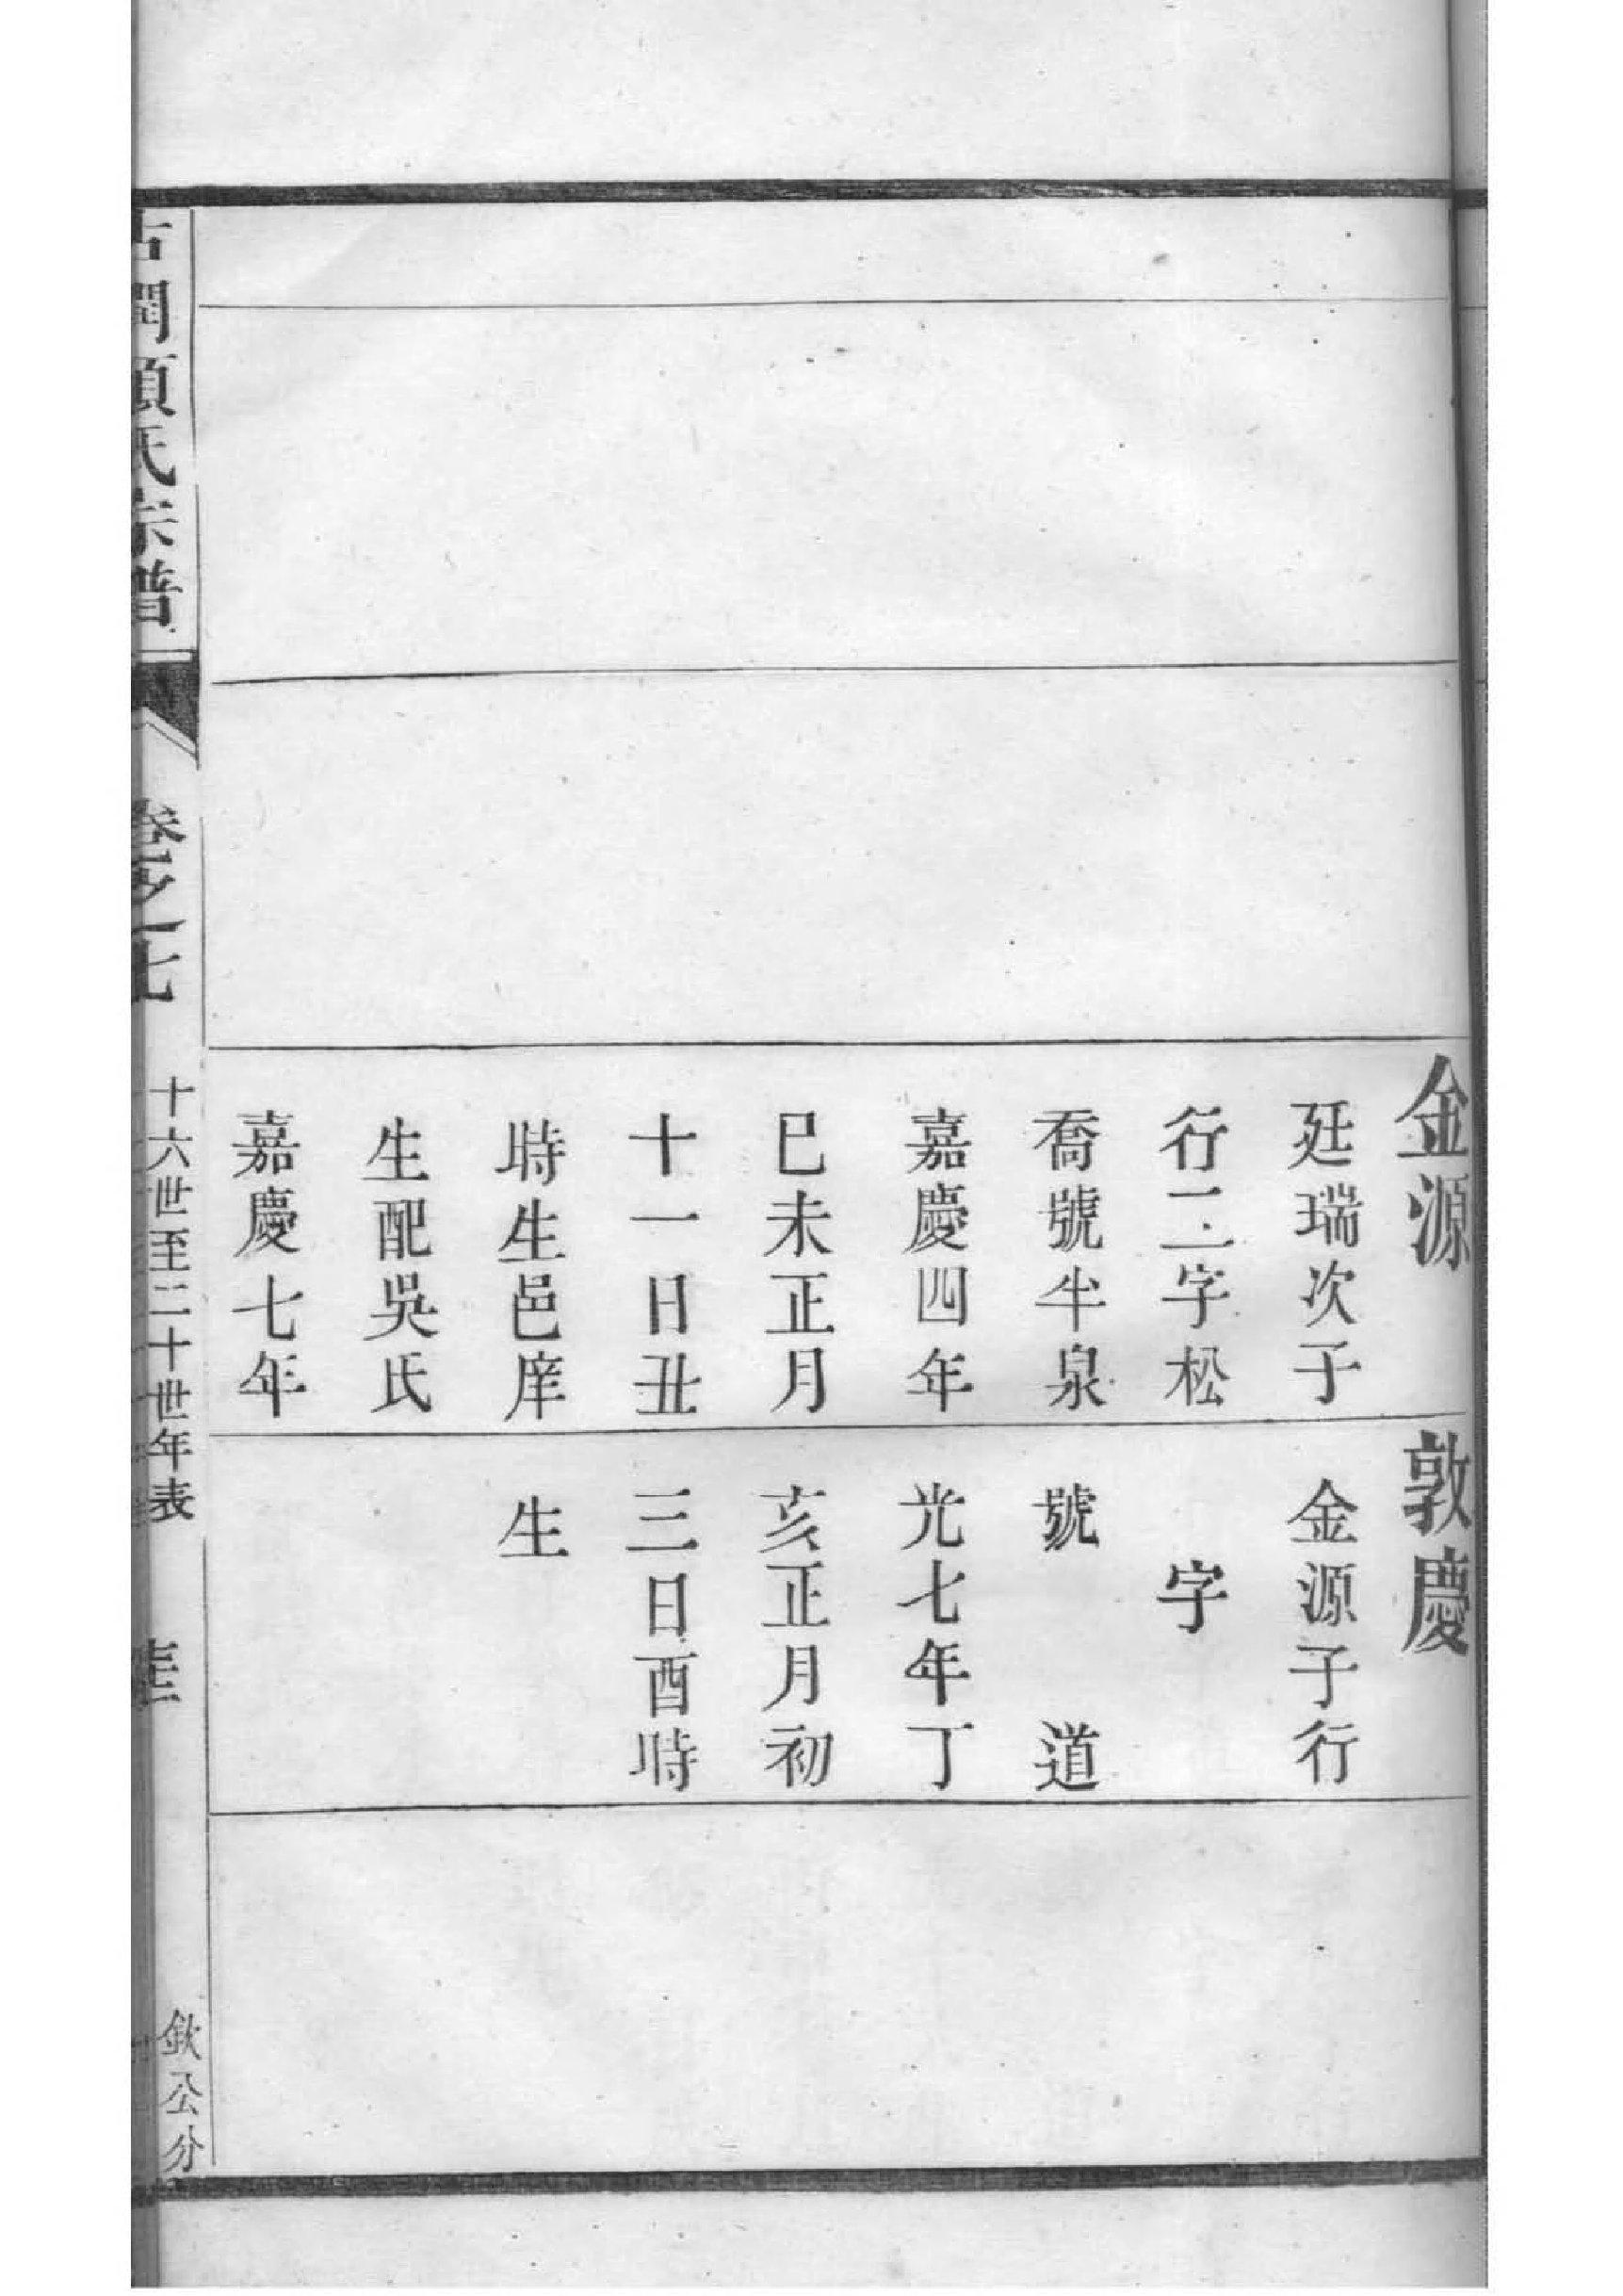 金源
廷瑞次子
行二字松
喬號半泉
嘉慶四年
巳未正月
十一日丑
時生邑庠
生配吳氏
嘉慶七年
敦慶
金源子行
字
號 道
光七年丁
亥正月初
三日酉時
生
氏宗譜
卷之十七
十六世至二十世年表
欽公分